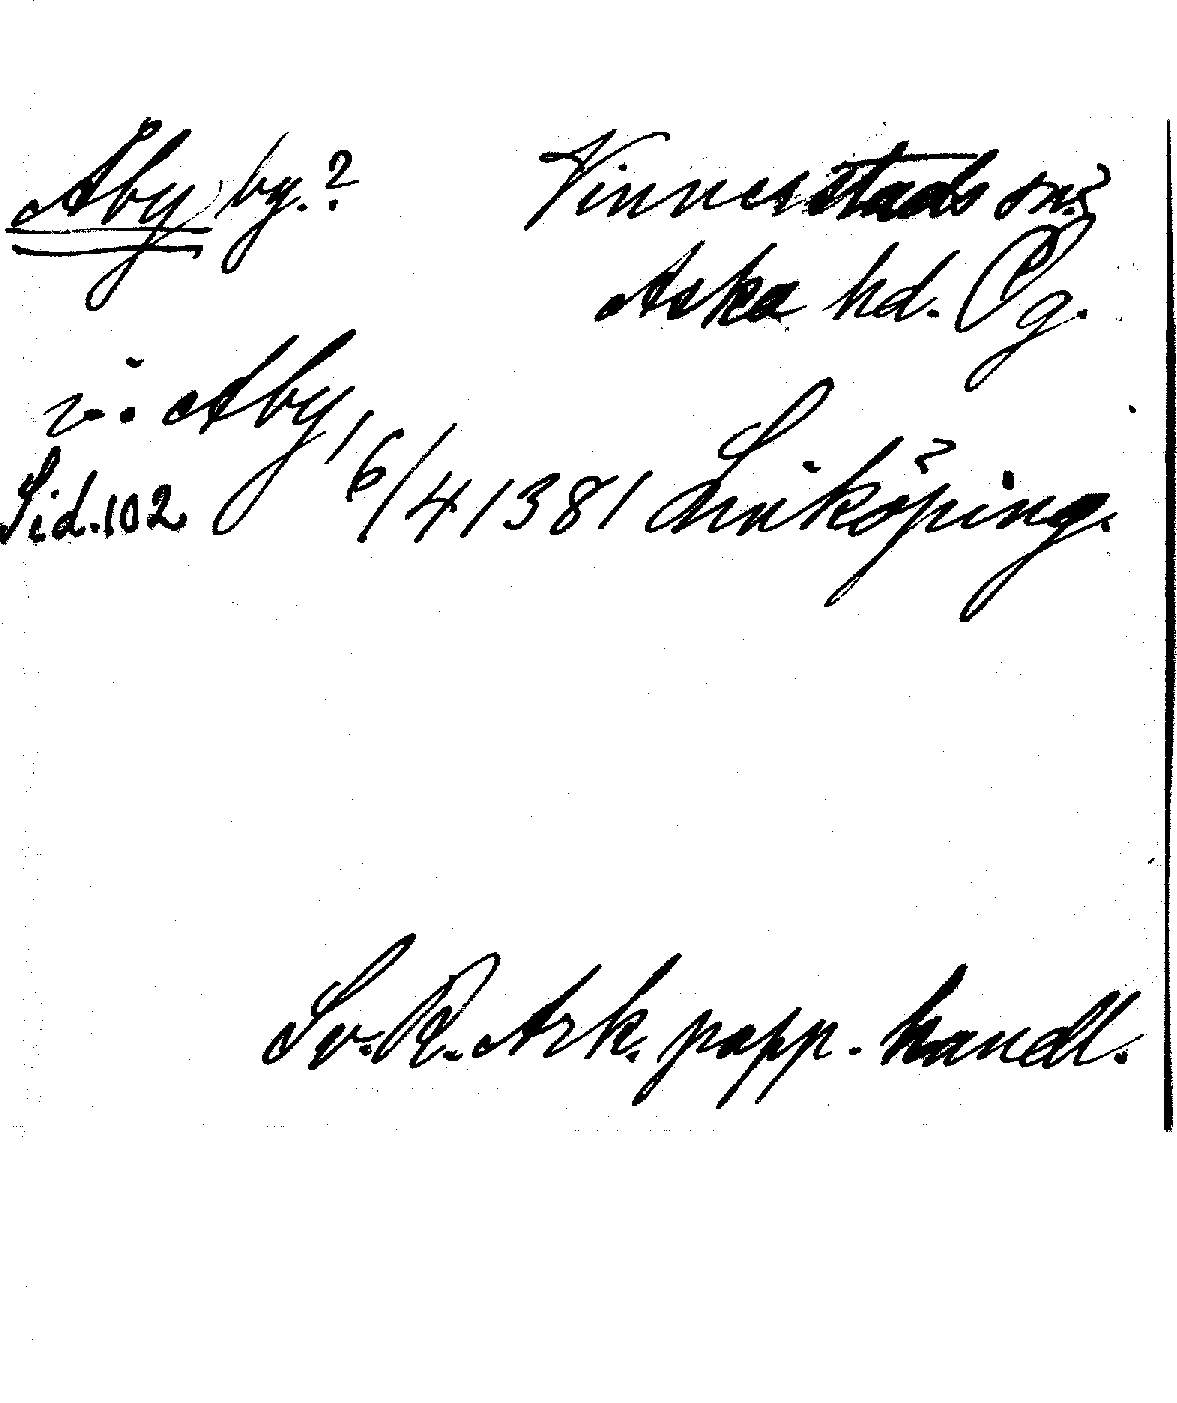 Åby by.? Vinnerstads sn?
Aska hd. Ög.
i. Aby, 6/4 1381 Linköping.
Sid. 102
Sv. R. Ark. papp. handl.